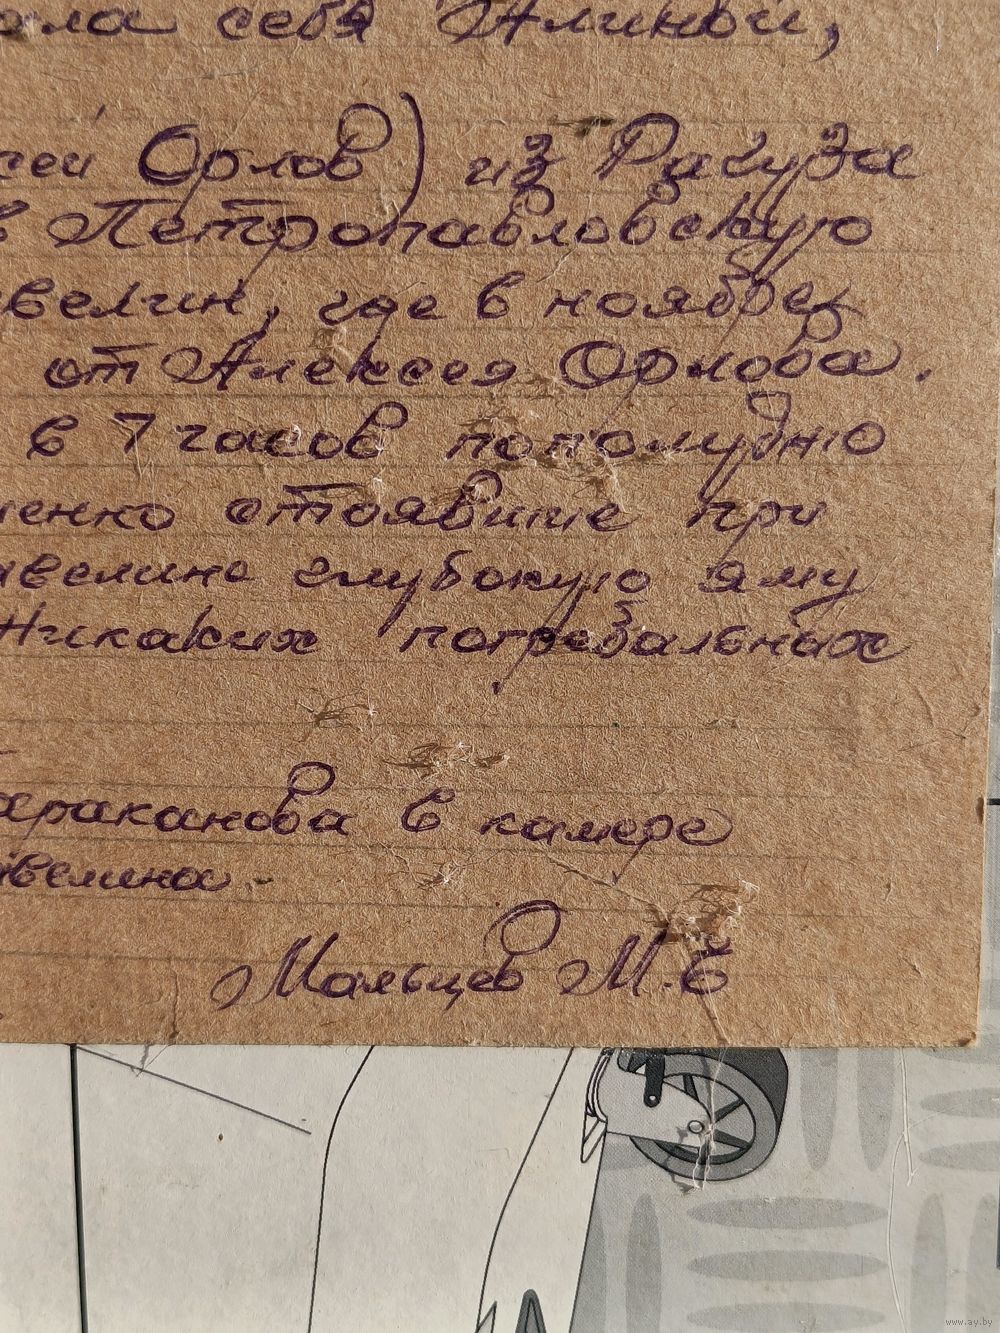 ала себя Алиной,
сей Орлов) из Рагуза
в Петропавловскую
авелин, где в ноябре
от Алексея Орлова.
в 7 часов пополудню
менно стоявшие при
авелина глубокую яму
Никаких погребальнах
араканова в камере
авелина.
Мальцев М.Е
www.ay.by